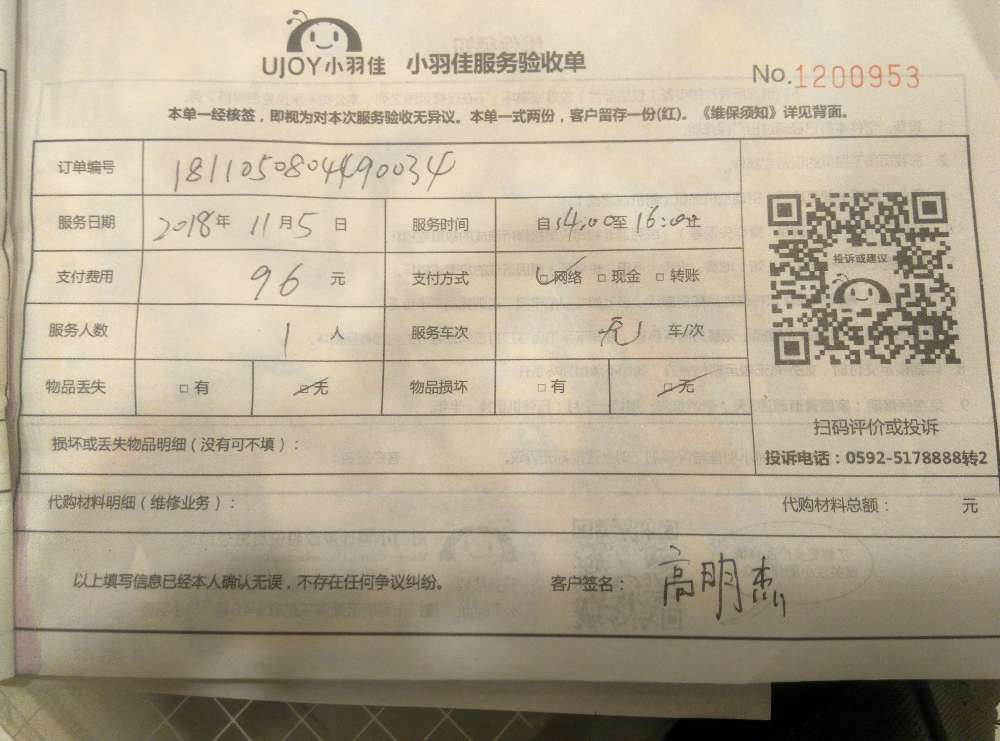 UJOY小羽佳 小羽佳服务验收单 No.1200953
本单一经核签，即视为对本次服务验收无异议。本单一式两份，客户留存一份(红)。《维保须知》详见背面。
订单编号 1811050804490034
服务日期 2018年 11月5日 服务时间 自14:00至16:00止
支付费用 96 元 支付方式 ☑网络 □现金 □转账
投诉或建议
服务人数 1 人 服务车次 1 车/次
物品丢失 □有 ☑无 物品损坏 □有 ☑无
扫码评价或投诉
损坏或丢失物品明细（没有可不填）：
投诉电话：0592-5178888转2
代购材料明细（维修业务）： 代购材料总额： 元
以上填写信息已经本人确认无误，不存在任何争议纠纷。 客户签名： 高明杰